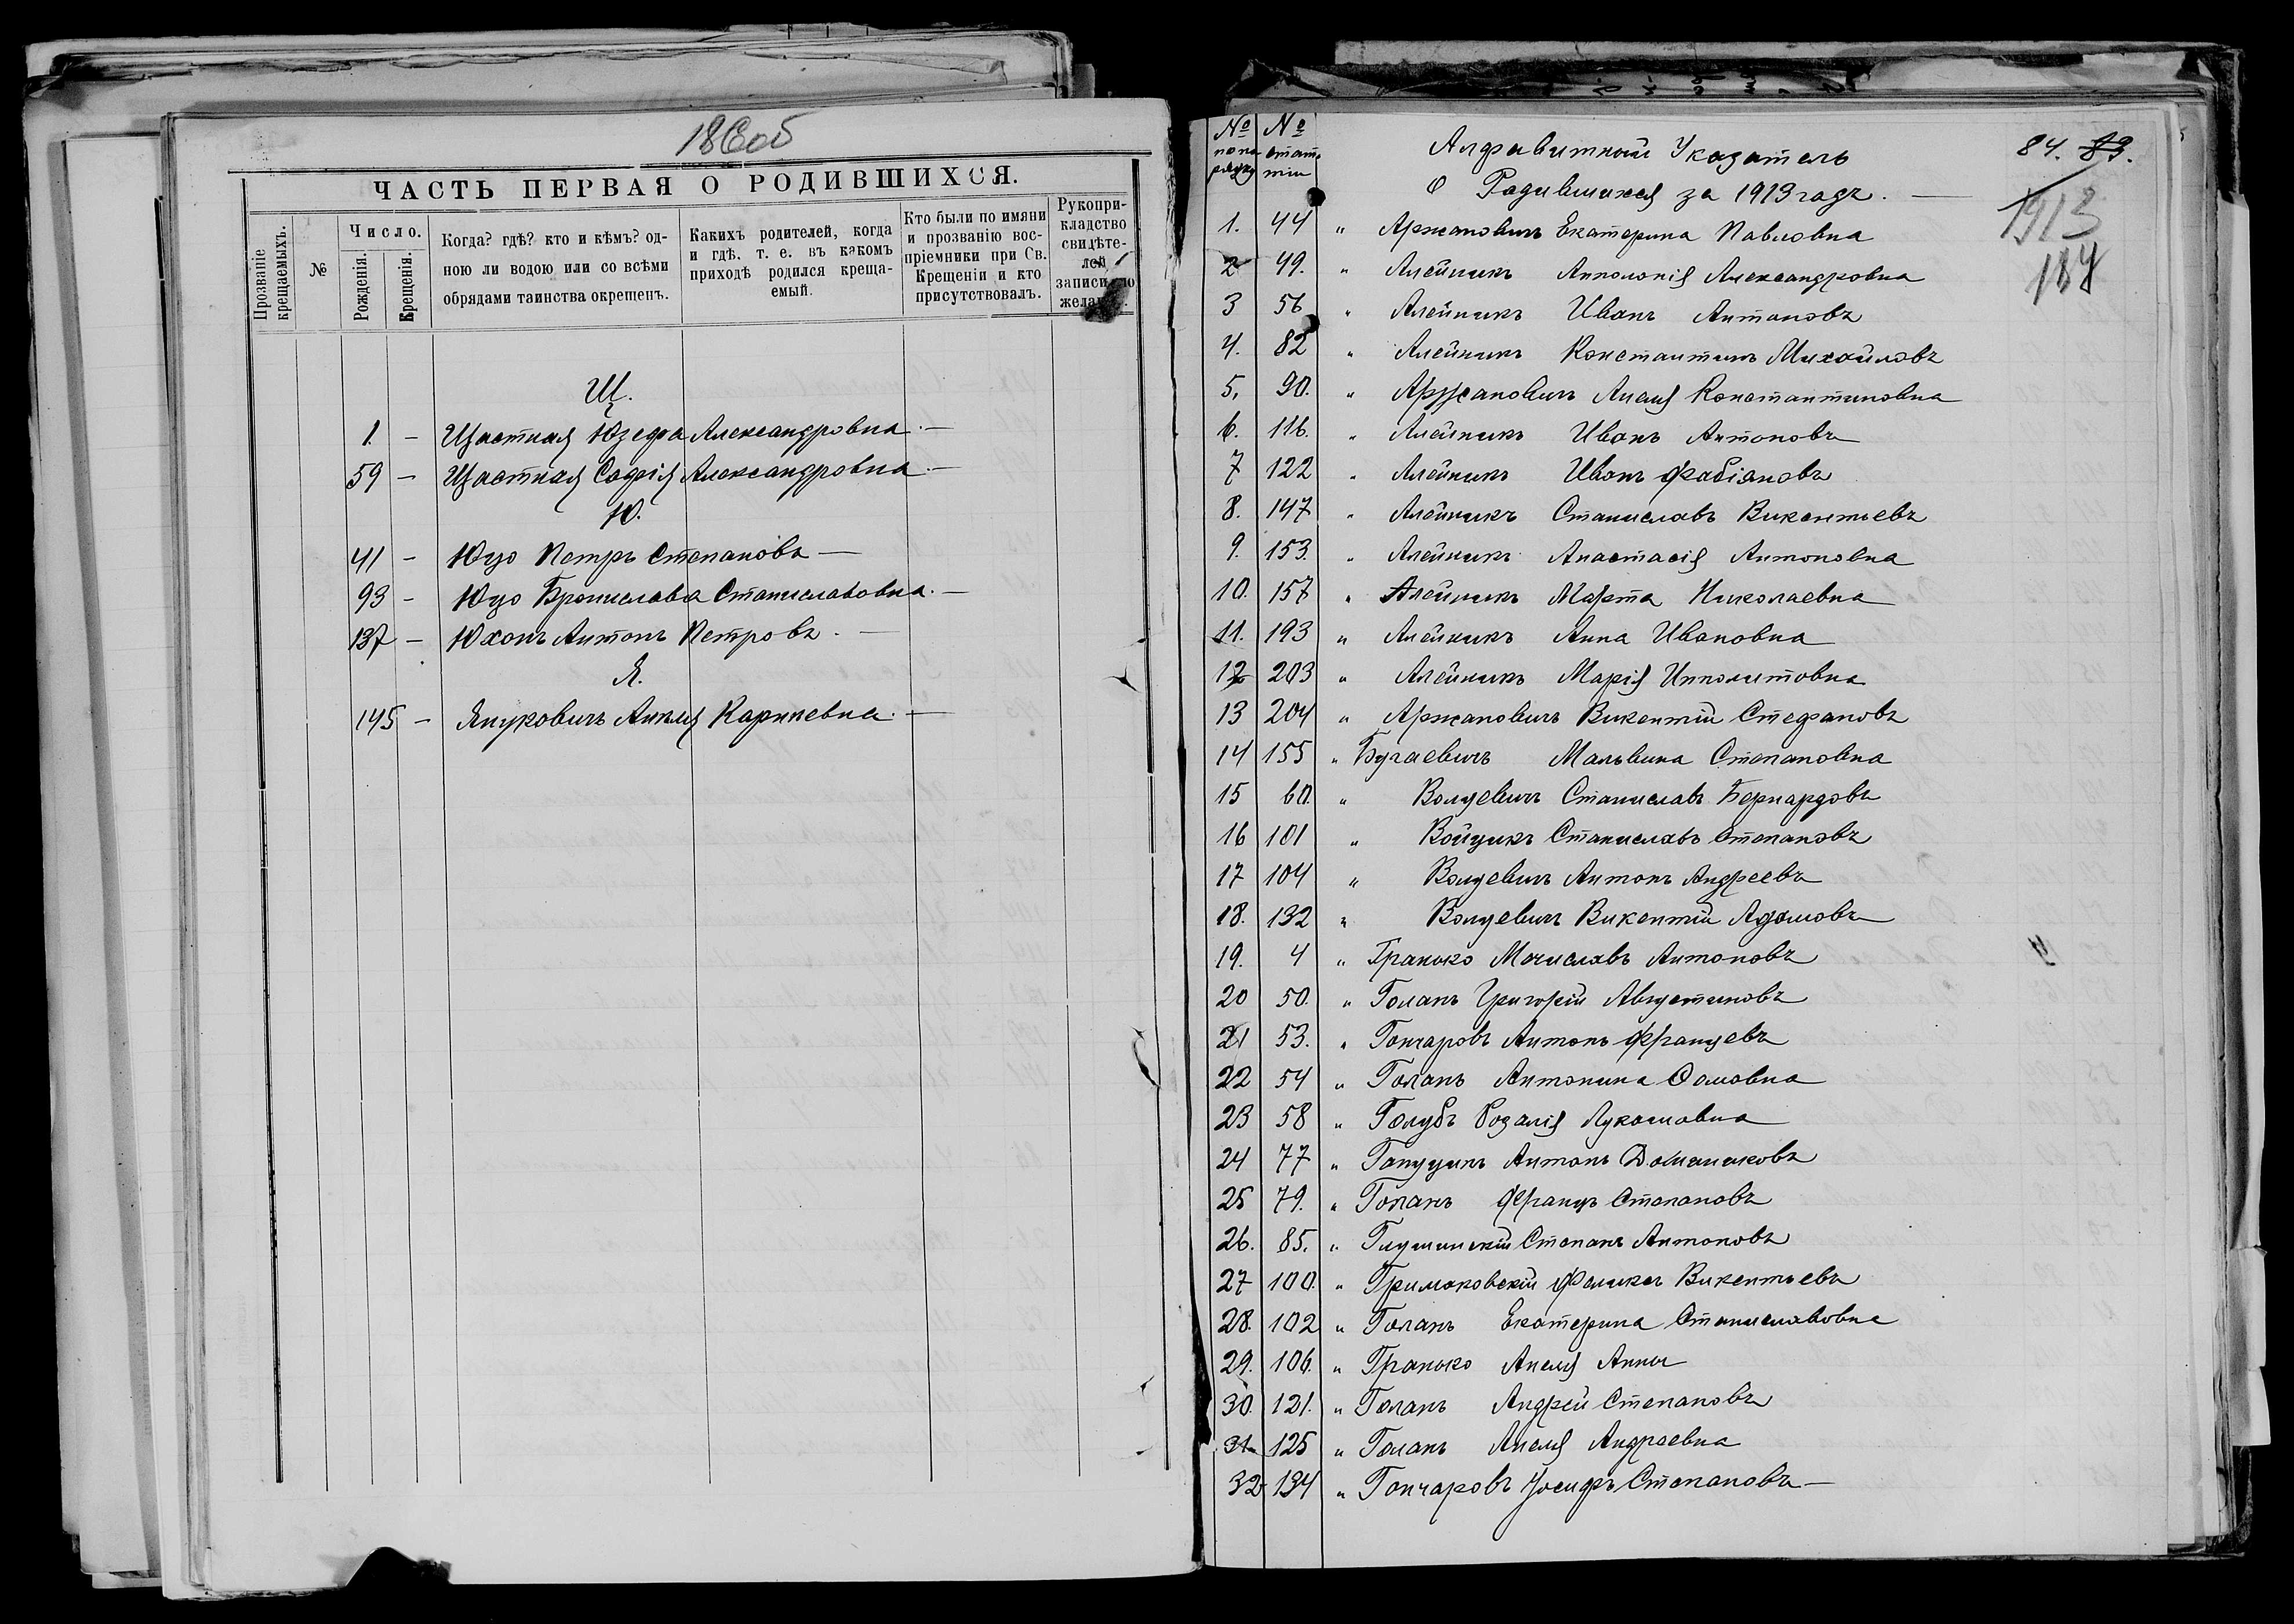 186 об
ЧАСТЬ ПЕРВАЯ О РОДИВШИХСЯ.
Прозваніе крещаемыхъ.
№
Число.
Рожденія.
Крещенія.
Когда? гдѣ? кто и кѣмъ? од-
ною ли водою или со всѣми
обрядами таинства окрещенъ.
Какихъ родителей, когда
и гдѣ, т. е. въ какомъ
приходѣ родился креща-
емый.
Кто были по имяни
и прозванію вос-
пріемники при Св.
Крещеніи и кто
присутствовалъ.
Рукопри-
кладство
свидѣте-
лей
записи по
желан
Щ.
1 — Щастная Юзефа Александровна. —
59 — Щастная Софія Александровна. —
Ю.
41 — Юцо Петръ Степановъ —
93 — Юцо Брониславa Станиславовна. —
137 — Юхонъ Антонъ Петровъ. —
Я.
145 — Януковичъ Анеля Карпиевна. —
№ по порядку
№ статьи
Алфавитный Указатель
о Родившихся за 1913 годъ. —
84. 83.
1913
187
1. 44 " Аржановичъ Екатерина Павловна
2 49. " Алейникъ Апполонія Александровна
3 56 " Алейникъ Иванъ Антоновъ
4. 82 " Алейникъ Константинъ Михайловъ
5. 90. " Аржановичъ Анеля Константиновна
6. 116. " Алейникъ Иванъ Антоновъ
7 122 " Алейникъ Иванъ Фабіяновъ
8. 147 " Алейникъ Станиславъ Викентьевъ
9. 153. " Алейникъ Анастасія Антоновна
10. 157 " Алейникъ Марта Николаевна
11. 193 " Алейникъ Анна Ивановна
12 203 " Алейникъ Марія Ипполитовна
13 204 " Аржановичъ Викентій Стефановъ
14 155 " Бугаевичъ Мальвина Степановна
15 60. " Волцевичъ Станиславъ Бернардовъ
16 101 " Войцикъ Станиславъ Степановъ
17 104 " Волцевичъ Антонъ Андреевъ
18. 132 " Волцевичъ Викентій Адамовъ
19. 4 " Гранько Мечиславъ Антоновъ
20 50. " Голанъ Григорій Августиновъ
21 53. " Гончаровъ Антонъ Францевъ
22 54 " Голанъ Антонина
23 58 " Голубъ Розалія Лукашовна
24 77 " Антонъ
25 79. " Голанъ Францъ Степановъ
26. 85. " Глушинскій Степанъ Антоновъ
27 100. " Гримаковскій Феликсъ Викентьевъ
28. 102 " Голанъ Екатерина Станиславовна
29. 106. " Гранько Анеля Анны
30. 121. " Голанъ Андрей Степановъ
31. 125 " Голанъ Анеля Андреевна
32 134 " Гончаровъ Іосифъ Степановъ —